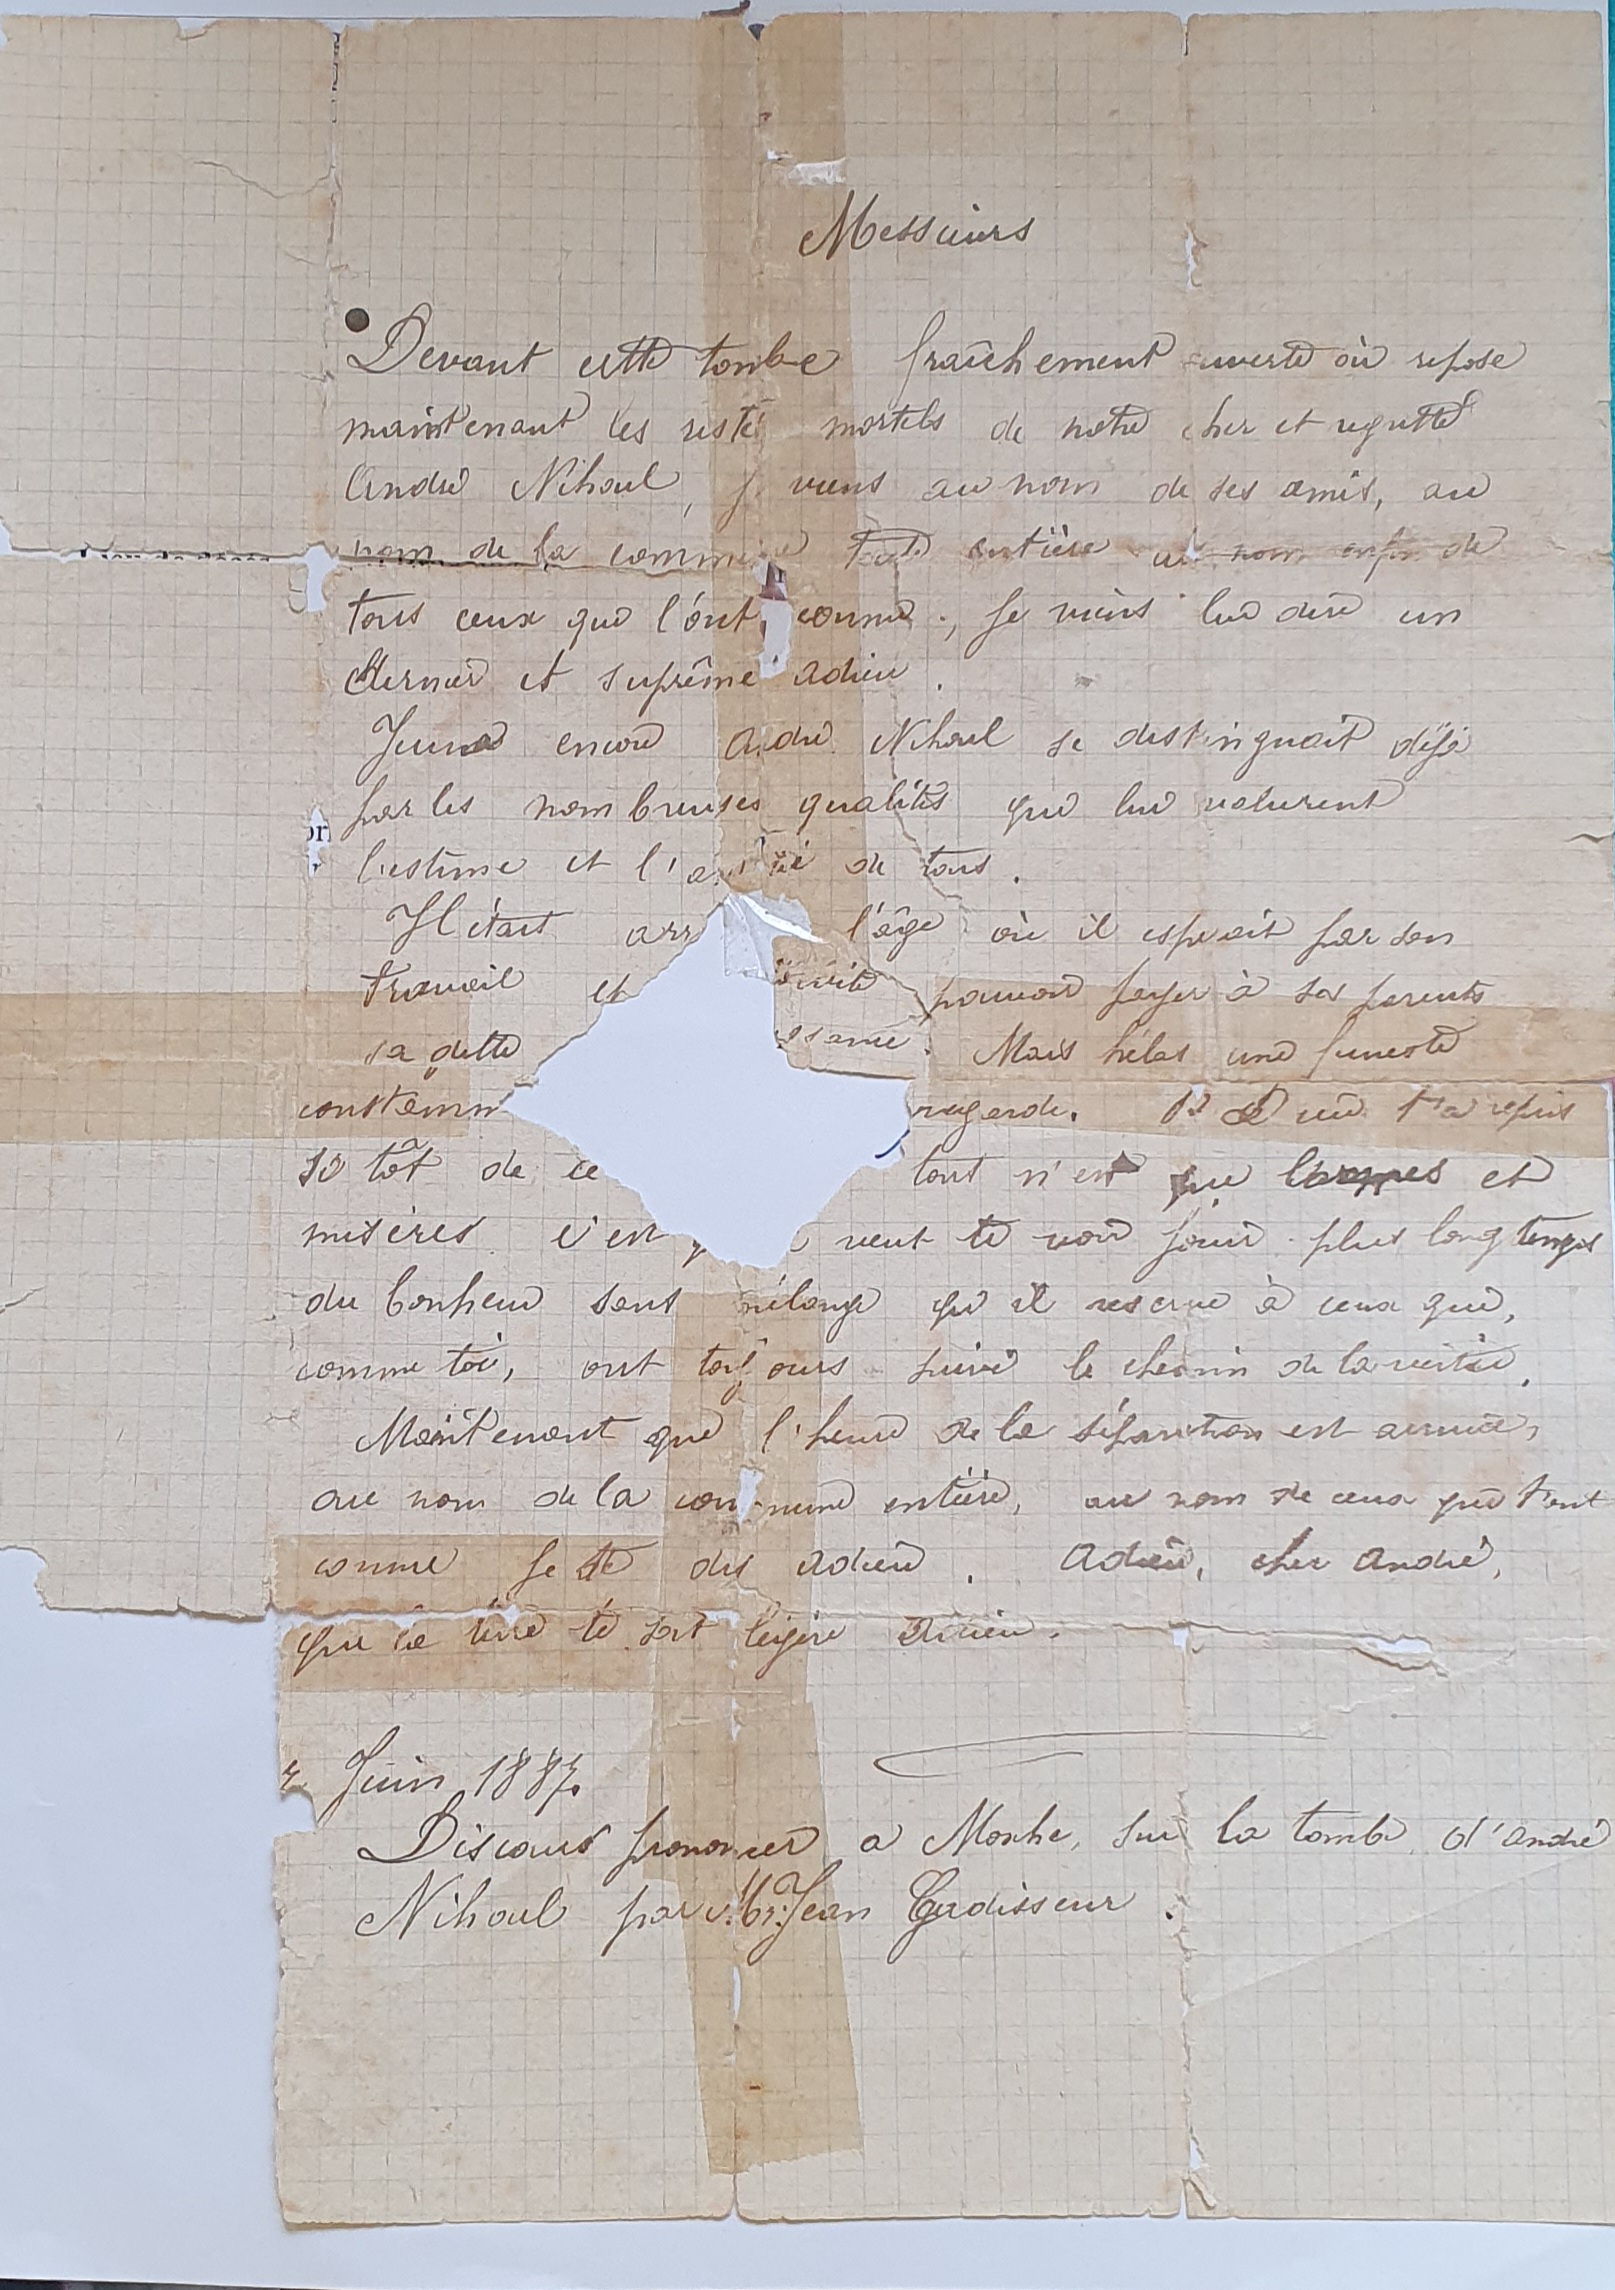 Messieurs
Devant cette tombe fraîchement ouverte où repose
maintenant les reste mortels de notre cher et regretté
André Nihoul, je viens au nom de ses amis, au
nom de la commune toute entière au nom enfin de
tous ceux qui l'ont connu, je viens lui dire un
dernier et suprême adieu.
Jeune encore André Nihoul se distinguait déjà
par les nombreuses qualités qui lui valurent
l'estime et l'amitié de tous.
Il était arr l'âge où il espérait par son
travail et pouvoir payer à ses parents
sa dette ssance. Mais hélas une funeste
regarde. Dieu t'a repris
si tôt de ce tout n'est que larmes et
misères c'est veut te voir jouir plus longtemps
du bonheur sans mélange qu'il reserve à ceux qui,
comme toi, ont toujours suivi le chemin de la vertu.
Maintenant que l'heure de la séparation est arrivée,
au nom de la commune entière, au nom de ceux qui t'ont
connu je te dis adieu. Adieu, cher André,
que la terre te soit légère adieu.
Juin 1887.
Discours prononcer a Moxhe, sur la tombe d'andré
Nihoul par Mr. Jean Gadisseur.